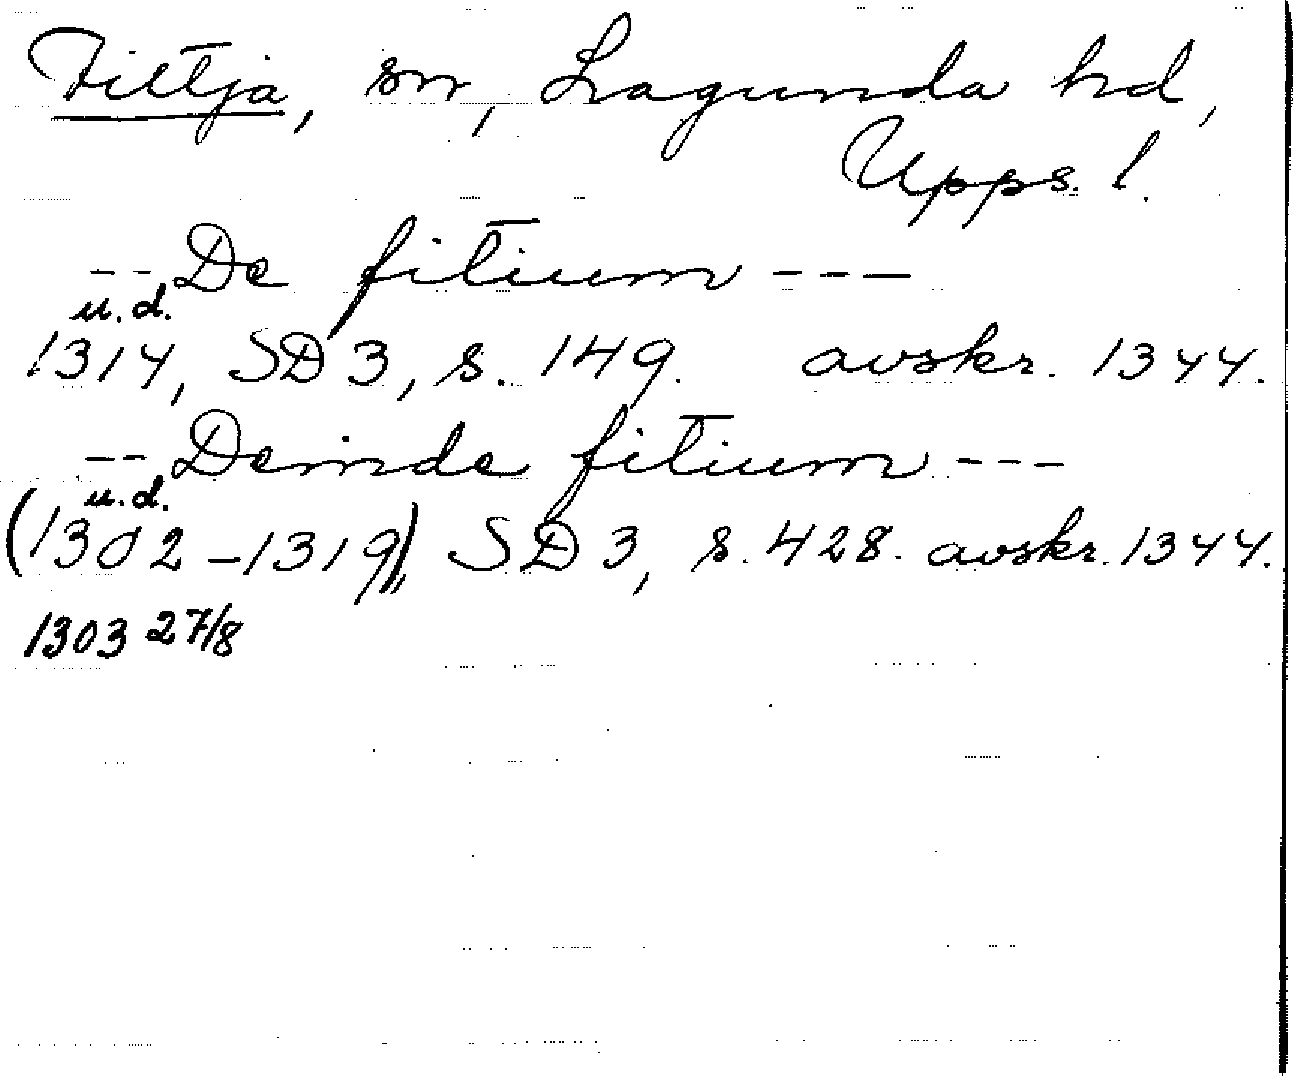 Fittja, sn, Lagunda hd,
Upps. l.
-- De fitium ---
u.d.
1314, SD 3, s. 149. avskr. 1344.
-- Deinde fitium ---
u.d.
(1302-1319), SD 3, s. 428. avskr. 1344.
1303 27/8